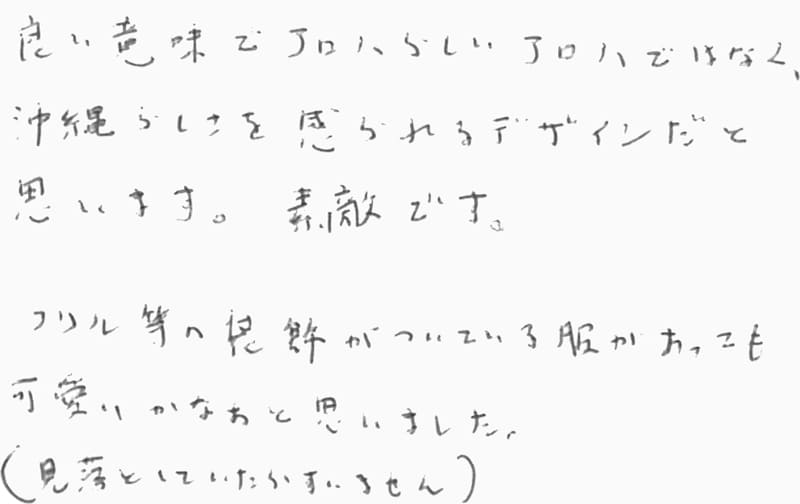 良い意味でアロハらしいアロハではなく、
沖縄らしさを感じられるデザインだと
思います。素敵です。
フリル等の装飾がついている服があっても
可愛いかなあと思いました。
(見落としていたらすいません)